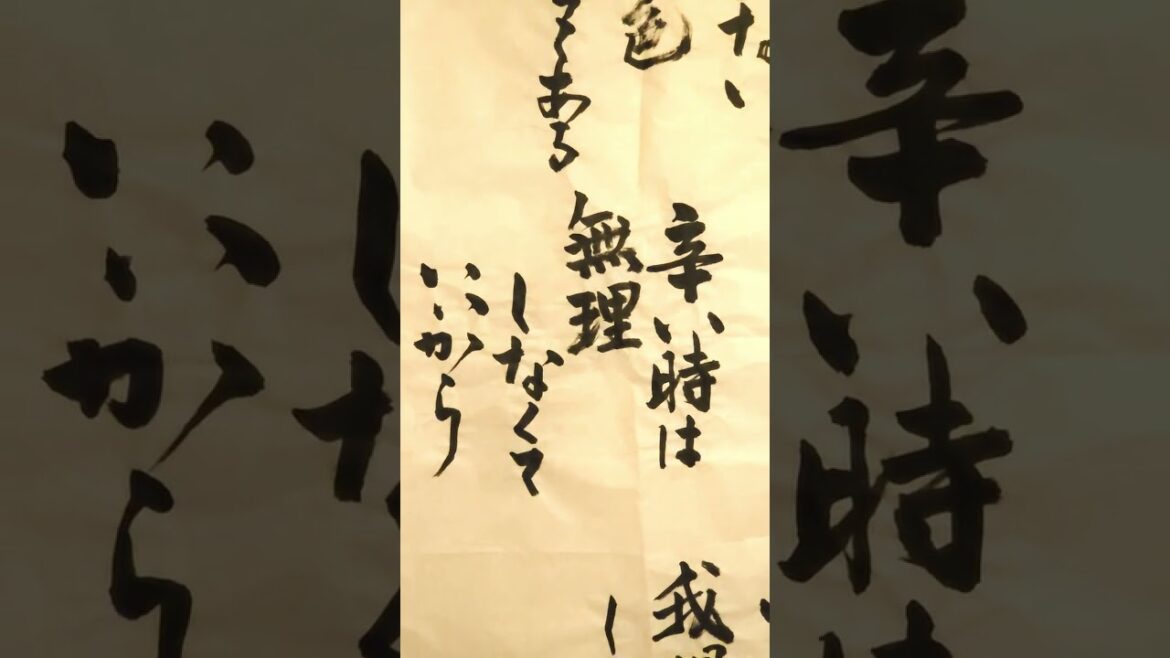 ない
色
てある
辛い時は
無理
しなくて
いいから
我